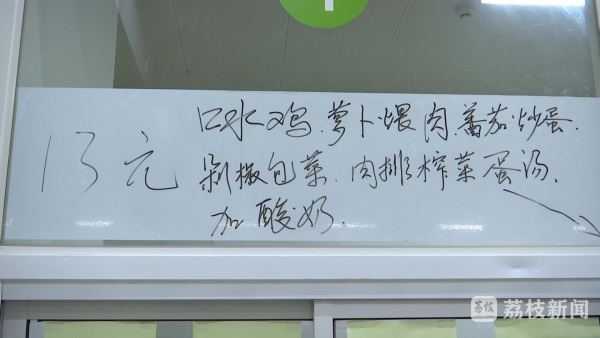 13元
口水鸡.萝卜煨肉番茄炒蛋.
剁椒包菜.肉排榨菜蛋汤.
加酸奶.
荔枝 荔枝新闻